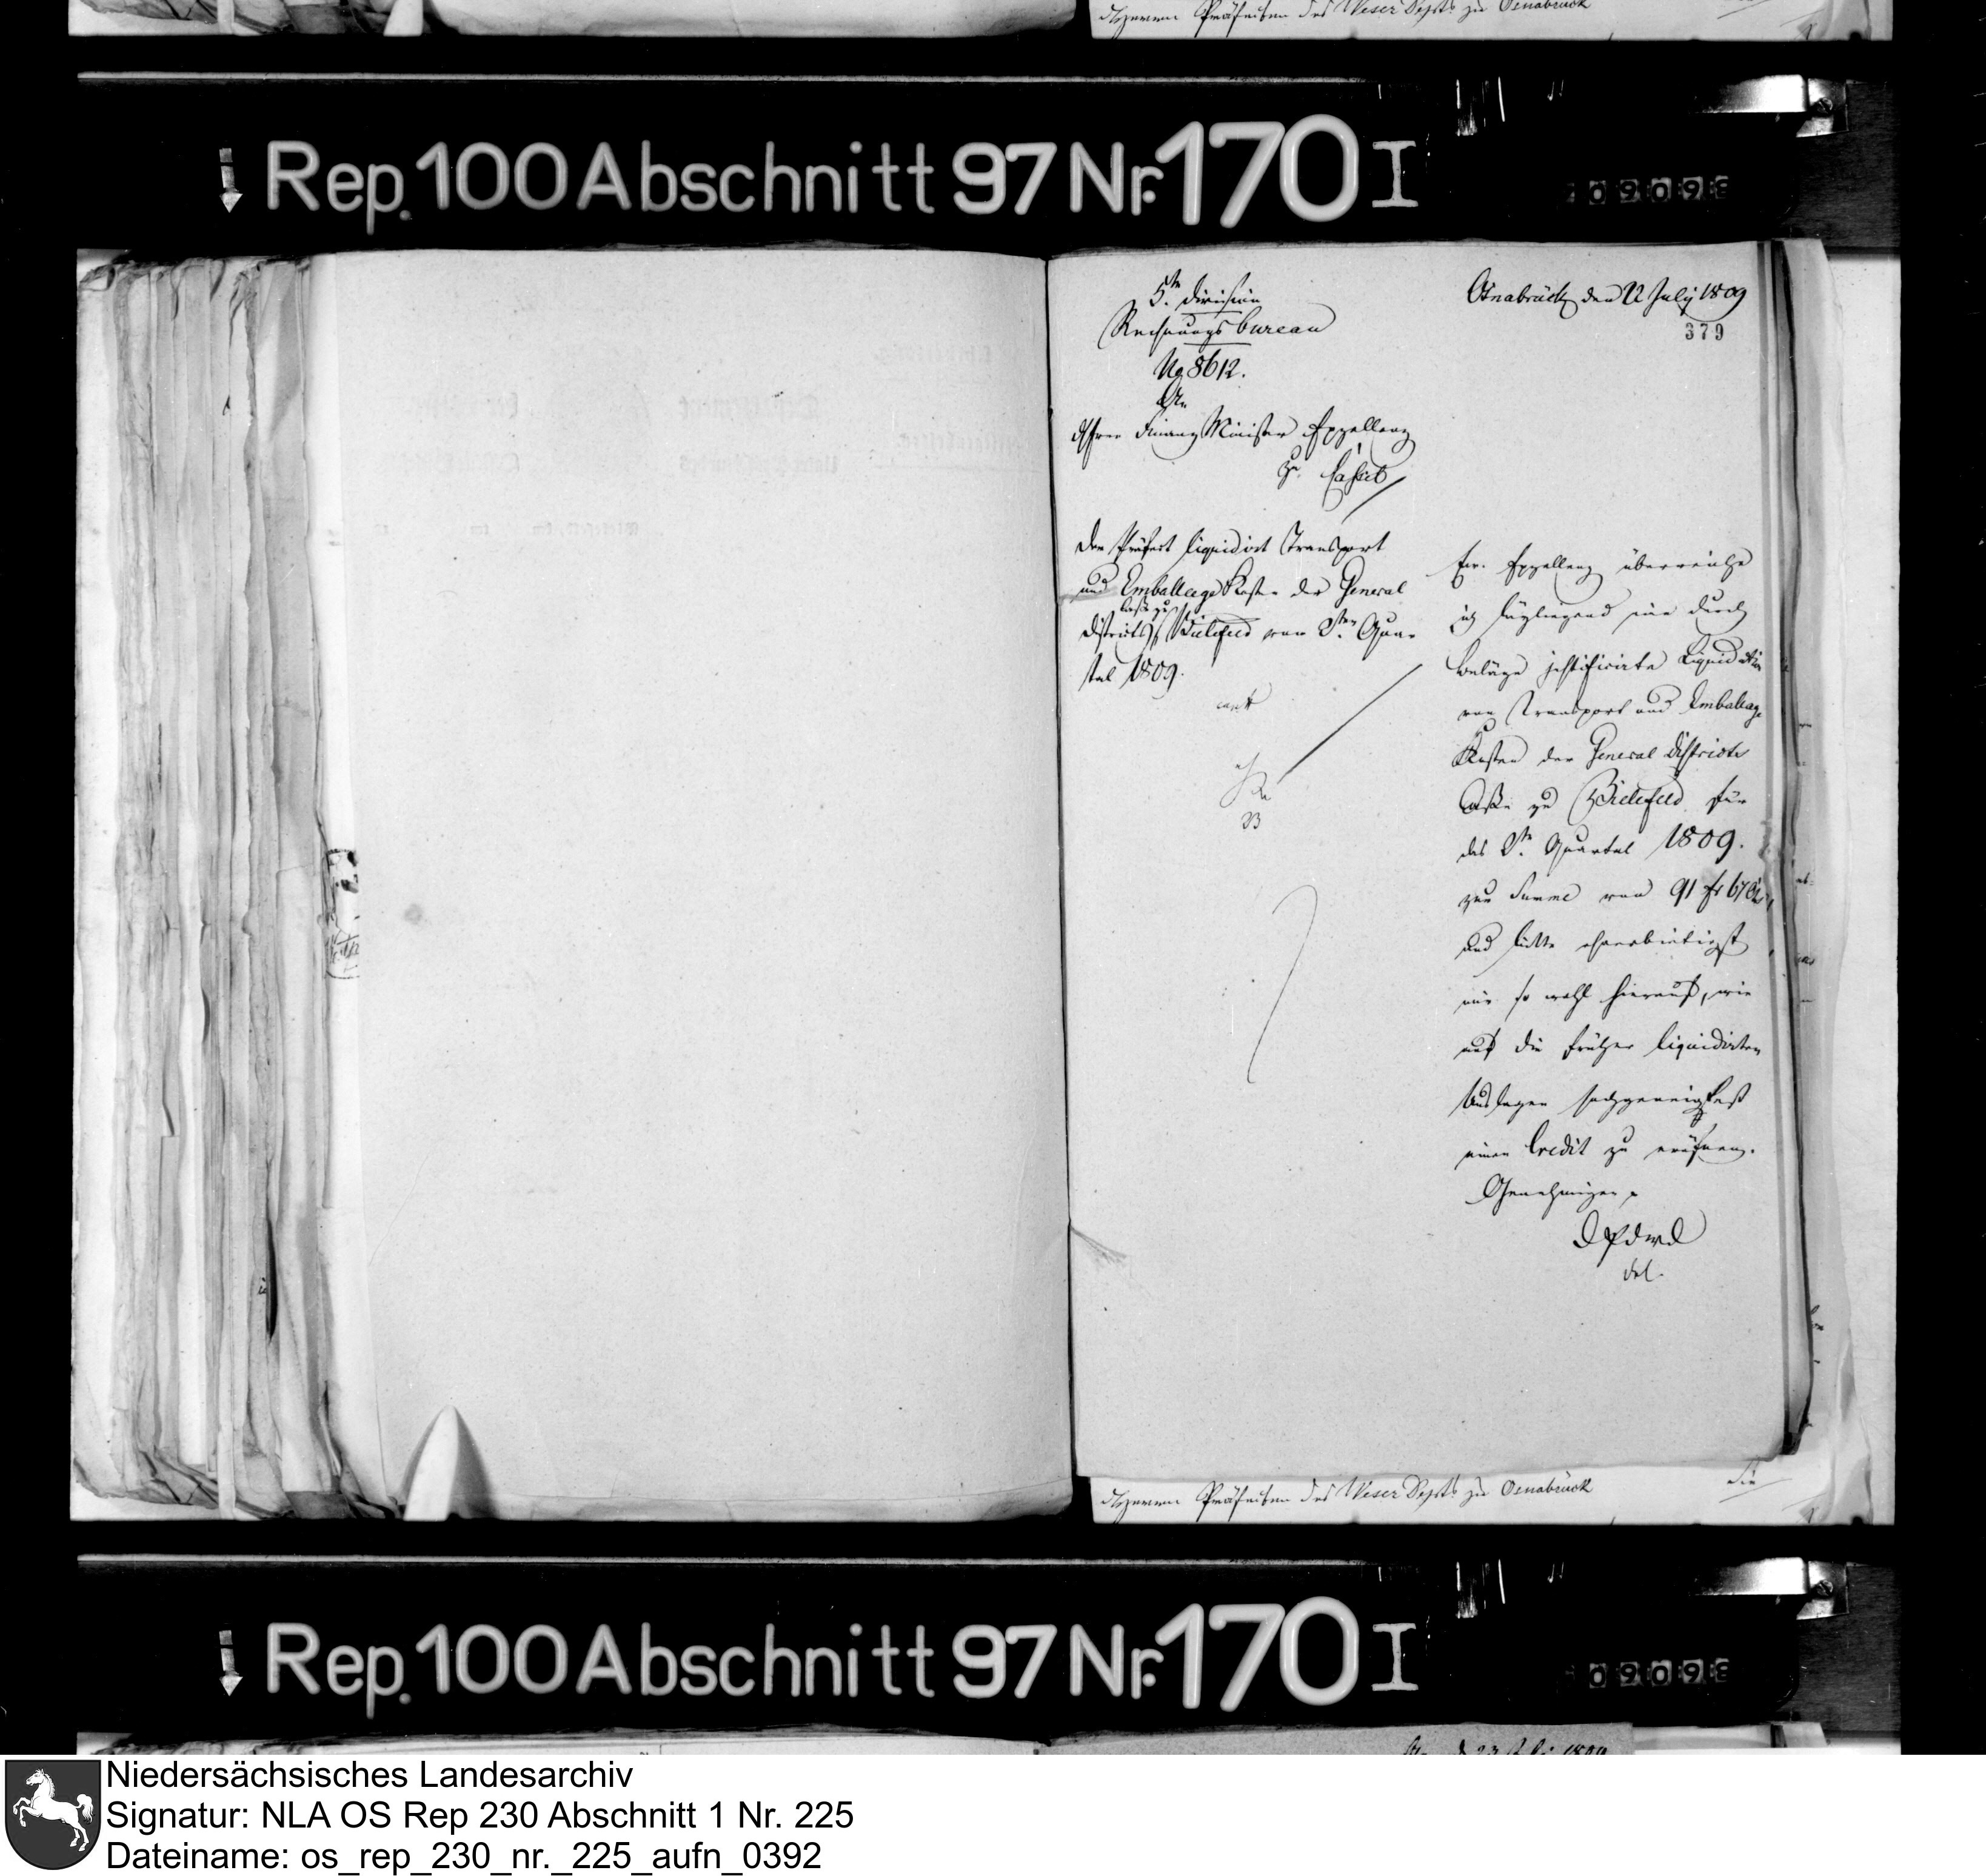 Herrn Präfecten des Weser Depts zu Osnabrück
Rep. 100 Abschnitt 97 Nr. 170 I
09093
5te Division
Rechnungsbureau
No 8612.
An
des Herrn Finanz Minister Excellenz
zu Cassel
Osnabrück den 22 July 1809
379
Der Präfect liquidirt Transport
und Emballage Kosten der General
Casse zu
Districts Bielefeld vom 2ten Quar-
tal 1809.
Ew. Excellenz überreiche
ich beyliegend eine durch
Beläge justificirte Liquidation
von Transport und Emballage
Kosten der General Districts
Casse zu Bielefeld für
das 2te Quartal 1809.
zur Summe von 91 fr 67 Cs,
und bitte ehrerbietigst
mir so wohl hierauf, wie
auf die früher liquidirten
Auslagen hochgeneigtest
einen Credit zu eröfnen.
Genehmigen
D P d W D
Herrn Präfecten des Weser Depts zu Osnabrück
Rep. 100 Abschnitt 97 Nr. 170 I
09093
Niedersächsisches Landesarchiv
Signatur: NLA OS Rep 230 Abschnitt 1 Nr. 225
Dateiname: os_rep_230_nr._225_aufn_0392